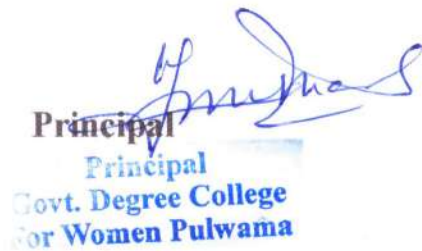 Principal
Principal
Govt. Degree College
For Women Pulwama